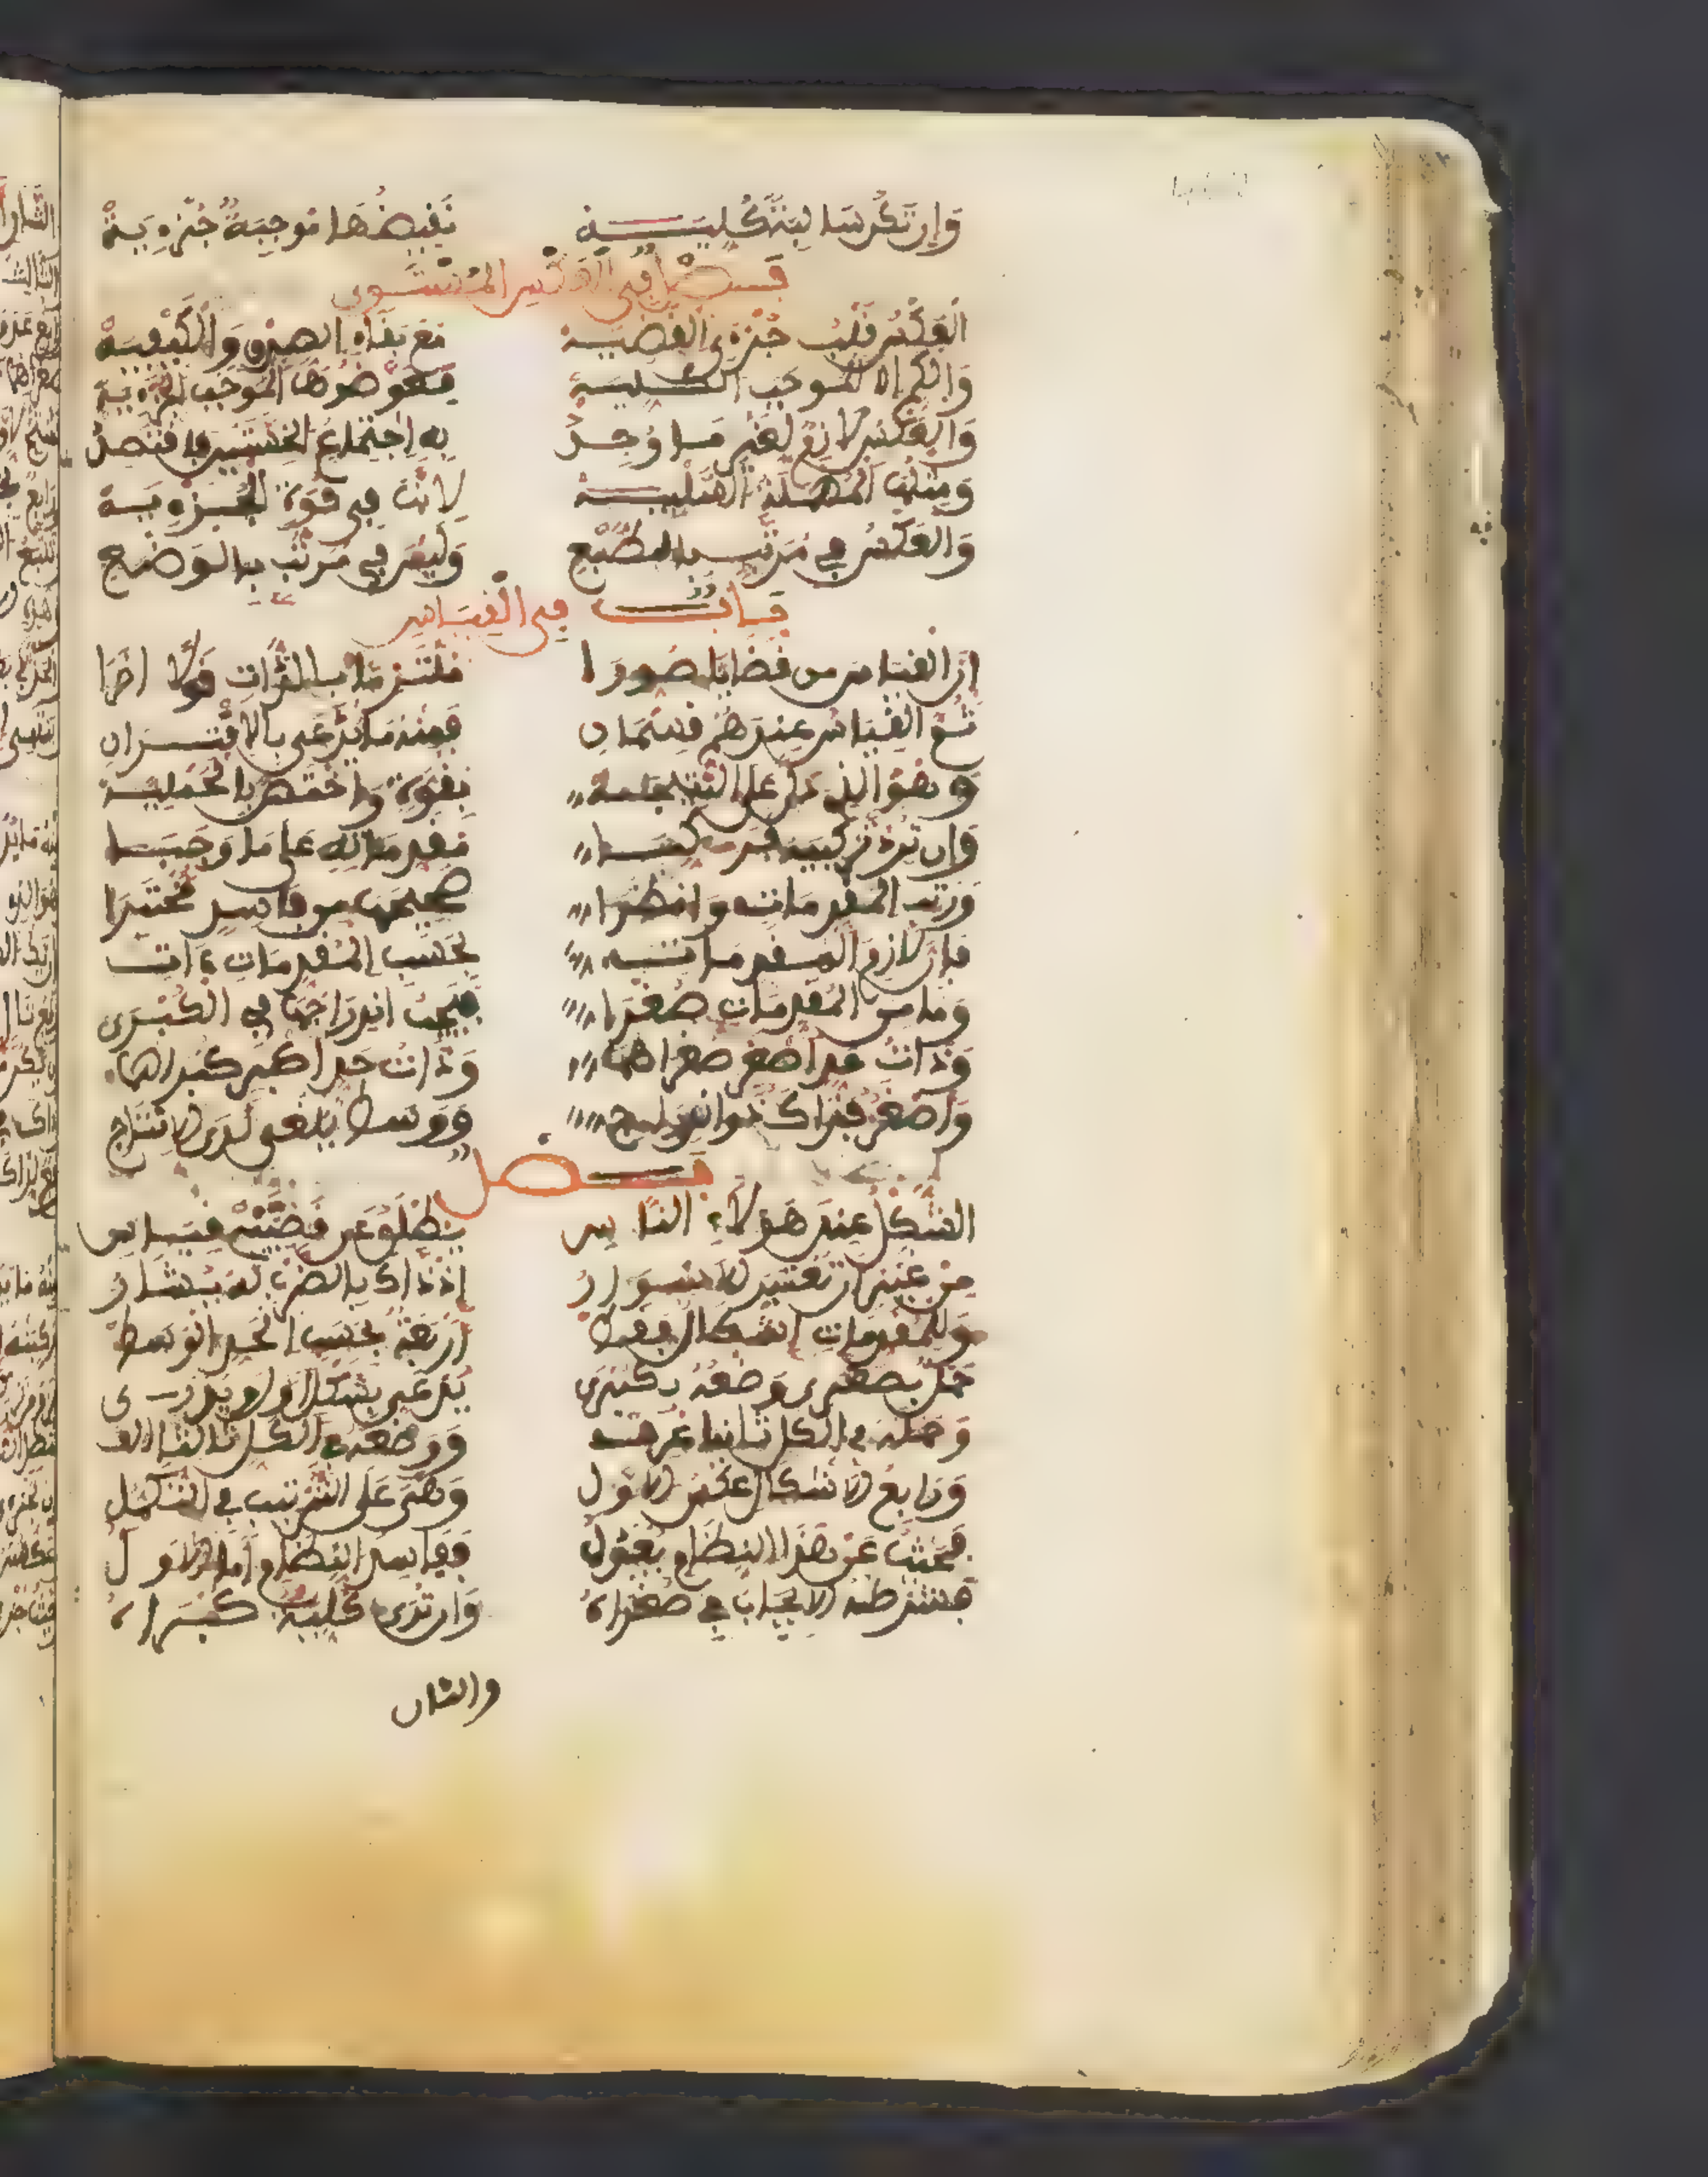 وَإِن تَكُن سَالِبَةً كُلِيَّة نَقِيضُهَا مُوجِبَةٌ جُزْءِيَّةْ
فصل في العكس المستوى
العَكْسُ قَلْبُ جُزْءَيِ القَضِيَّة مَعَ بَقَاءِ الصِدْقِ وَالْكَيْفِيَّةْ
وَالْكَمِ إِلا المُوجَبَ الكُلِّيَة فَعَوِّضُوهَا المُوجَبَ الجُزْءِيَّة
وَالعَكْسُ لَازِمٌ لِغَيْرِ مَا وُجِدْ بِهِ اِجْتِمَاعُ الخِسَّتَيْنِ فَاقْتَصِدْ
وَمِثْلُهَا المُهْمَلَةُ السَّلْبِيَّة لِأَنَّهَا فِي قُوَةِ الجُزْءِيَّة
وَالعَكْسُ فِي مُرَتَّبٍ بِالطَّبْعِ وَلَيْسَ فِي مُرَتَّبٍ بِالوَضْعِ
بَابٌ فِي القِيَاسِ
إنَّ القِيَاسَ مِن قَضَايَا صُوِّرَا مُسْتَلْزِمًا بِالذَّاتِ قَوْلًا اخَرَا
ثُمَّ القِيَاسُ عِنْدَهُمْ قِسْمَانِ فَمِنْهُ مَا يُدْعَى بِالاِقْتِرَانِ
وَهُوَ الذِي دَلَّ عَلَى النَّتِيجَةِ بِقُوَةٍ وَاخْتَصَّ بِالحَمْلِيَّة
وَإِن تُرِدْ تَرْكِيبَهُ فَرَكِّبَا مُقَدِّمَاتِهِ عَلَى مَا وَجَبَا
وَرَتِّبِ المُقَدِّمَاتِ وَانظُرَا صَحِيحَهَا مِن فَاسِدٍ مُخْتَبِرَا
فَإِنَّ لَازِمَ المُقَدِّمَاتِ بِحَسَبِ المُقَدِّمَاتِ ءَاتِ
وَمَا مِنَ المُقَدِّمَاتِ صُغْرَا فَيَجِبُ انْدِرَاجُهَا فِي الكُبْرَى
وَذَاتُ حَدٍّ اصْغَرٍ صُغْرَاهُمَا وَذَاتُ حَدٍّ اكْبَرٍ كُبْرَاهُمَا
وَأَصْغَرٌ فَذَاكَ ذُو انْدِرَاجِ وَوَسَطٌ يُلْغَى لَدَى الاِنْتَاجِ
فصل
الشَّكْلُ عِنْدَ هَؤُلَاءِ النَّاسِ يُطْلَقُ عَن قَضِيَّتَيْ قِيَاسِ
مِنْ غَيْرِ أَن تُعْتَبَرَ الاسْوَارُ إِذْ ذَاكَ بِالضَرْبِ لَهُ يُشَارُ
وَلِلمُقَدِّمَاتِ أَشْكَالٌ فَقَطْ أَرْبَعَةٌ بِحَسَبِ الحَدِّ الوَسَطْ
حَمْلٌ بِصُغْرَى وَضْعُهُ بِكُبْرَى يُدْعَى بِشَكْلٍ اوَّلٍ وَيُدْرَى
وَحَمْلُهُ فِي الكُلِّ ثَانِيًا عُرِفْ وَوَضْعُهُ فِي الكُلِّ ثَالِثًا الِفْ
وَرَابِعُ الاشْكَالِ عَكْسُ الاوَّلِ وَهْيَ عَلَى التَّرْتِيبِ فِي التَّكَمُّلِ
فَحَيْثُ عَنْ هَذَا النِّظَامِ يُعْدَلُ فَفَاسِدُ النِّظَامِ أَمَّا الاوَّلُ
فَشَرْطُهُ الإيجَابُ فِي صُغْرَاهُ وَأَن تُرَى كُلِيَّةً كُبْرَاهُ
والثان